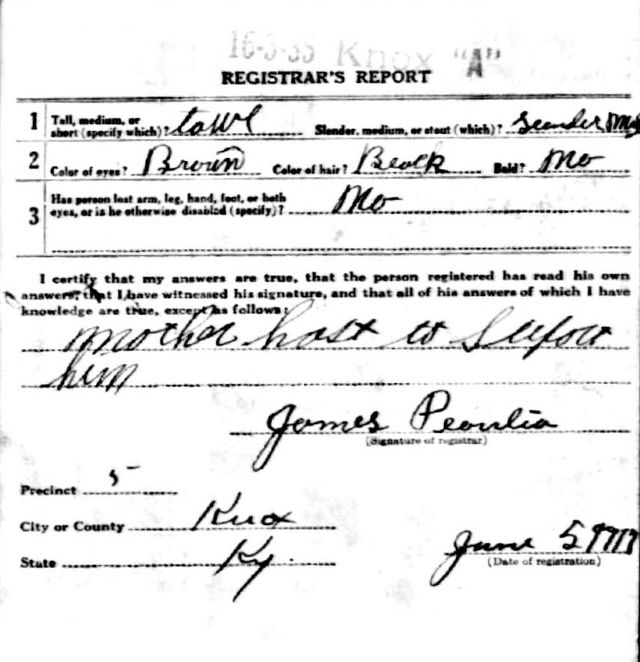 16-5-33 Knox "A"
REGISTRAR'S REPORT
1 Tall, medium, or short (specify which)? tawl Slender, medium, or stout (which)?
2 Color of eyes? Brown Color of hair? Black Bald? No
3 Has person lost arm, leg, hand, foot, or both
eyes, or is he otherwise disabled (specify)? No
I certify that my answers are true, that the person registered has read his own
answers, that I have witnessed his signature, and that all of his answers of which I have
knowledge are true, except as follows:
mother hast to
him
James
(Signature of registrar)
Precinct 5
City or County Knox
State Ky.
June 5 1917
(Date of registration)